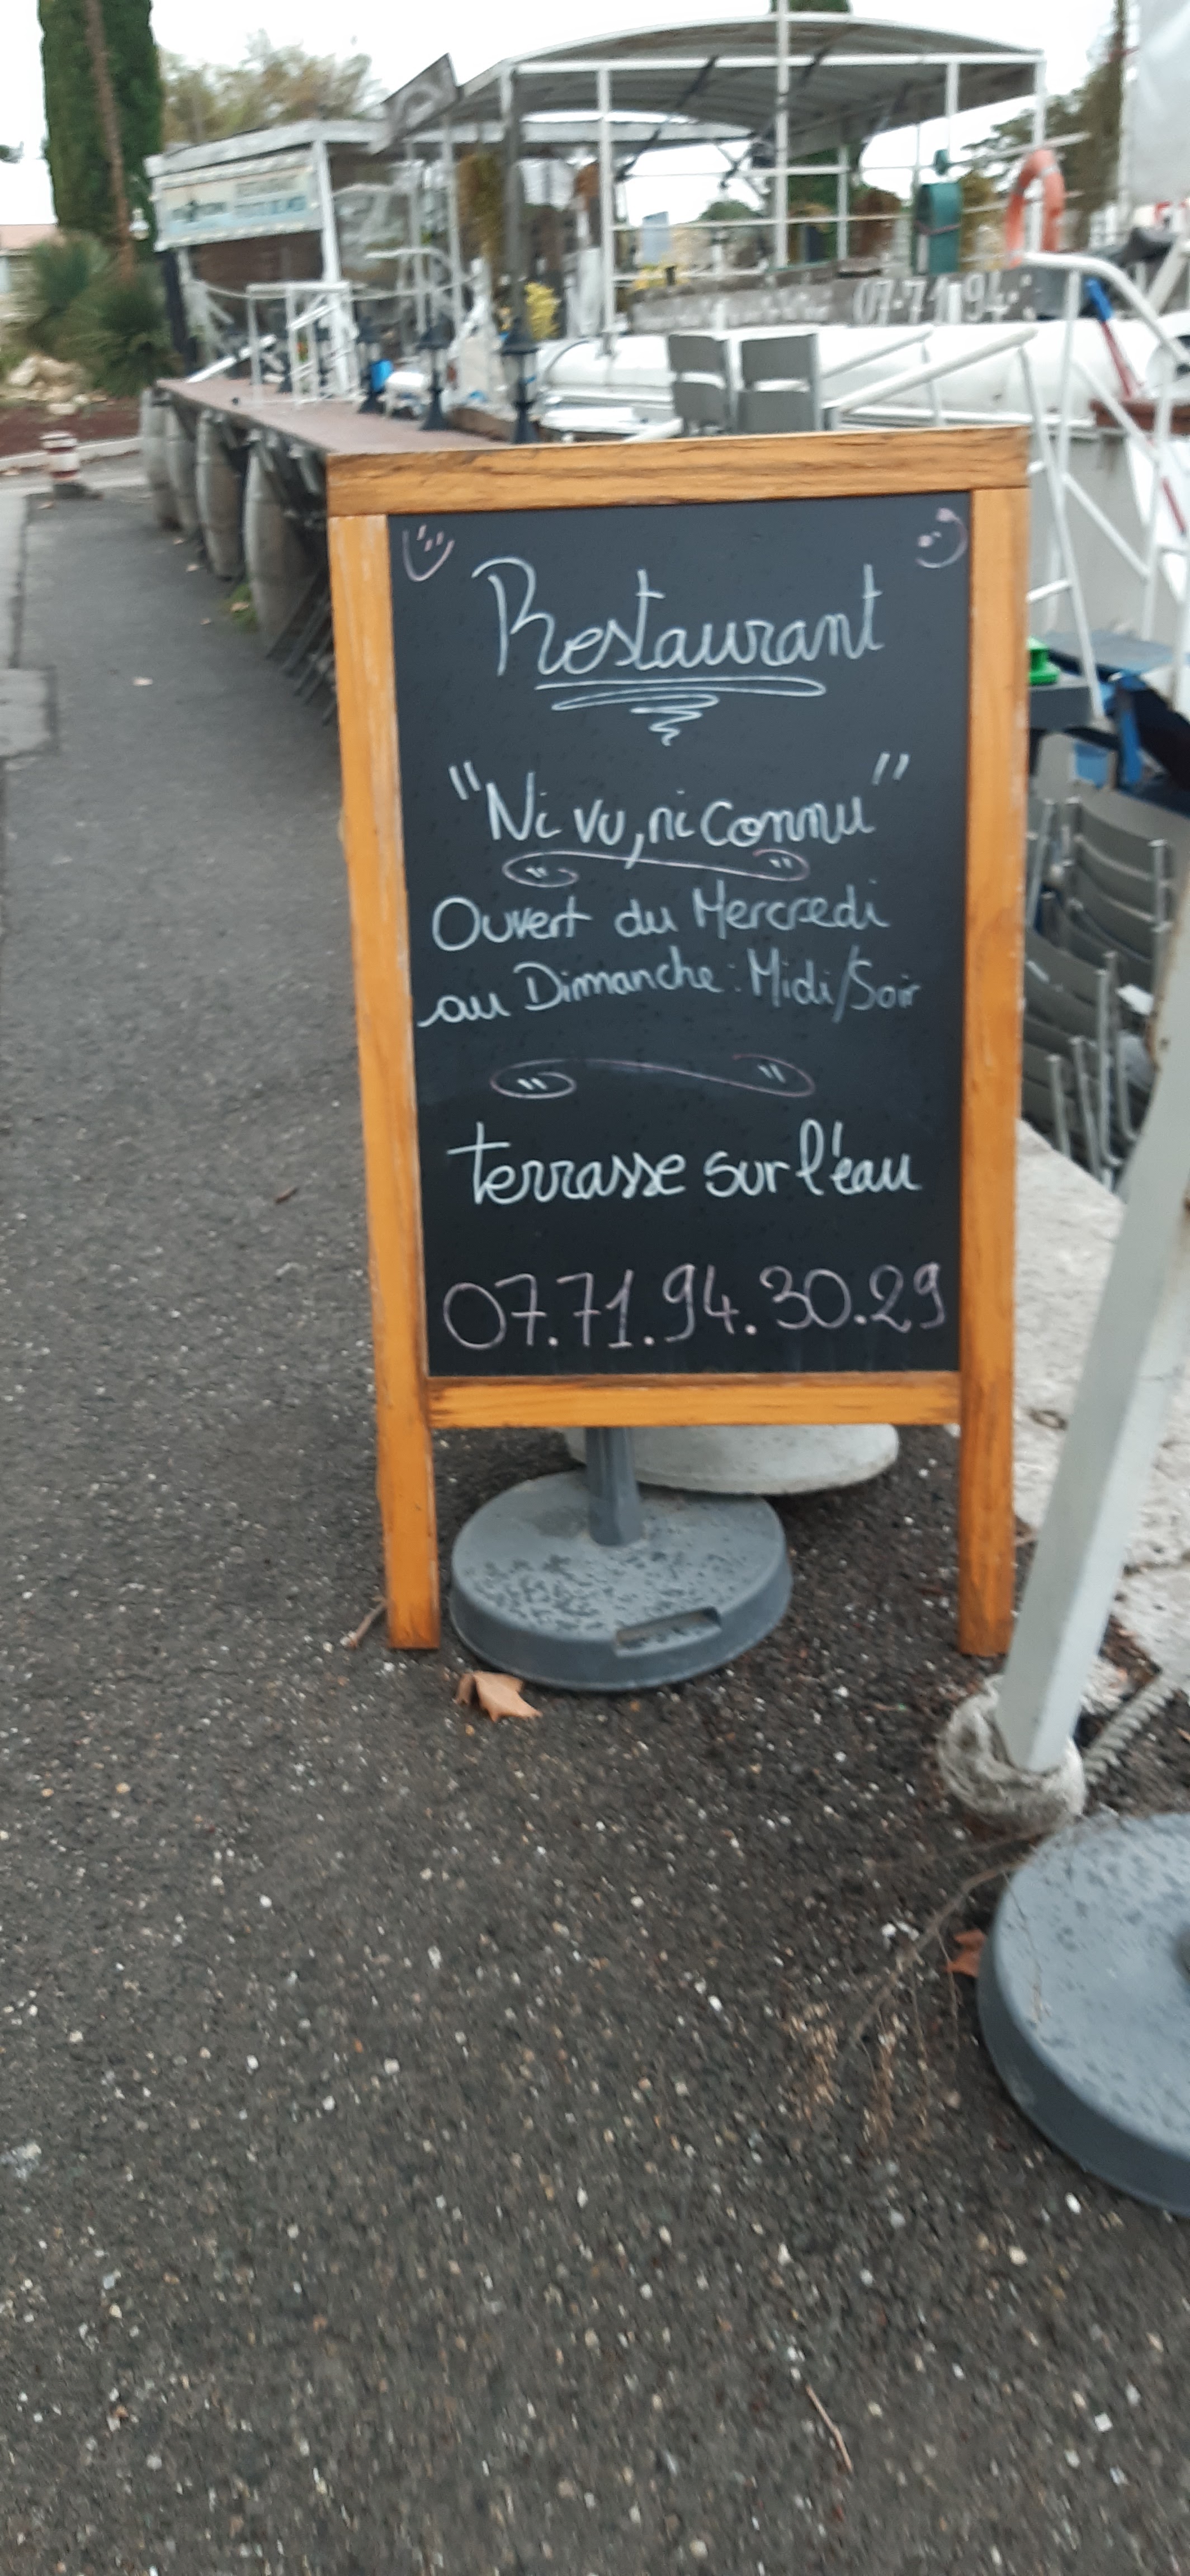 07-71-94-
Restaurant
"Ni vu, ni connu"
Ouvert du Mercredi
au Dimanche : Midi/Soir
terrasse sur l'eau
07.71.94.30.29